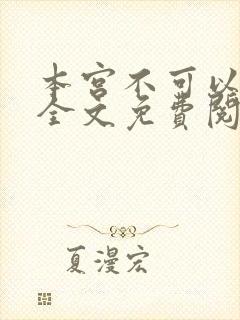 本宫不可以
全文免費閱
夏漫宏